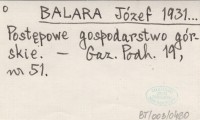 o BALARA Józef 1931...
Postępowe gospodarstwo gór-
skie. – Gaz. Podh. 19,
nr 51.